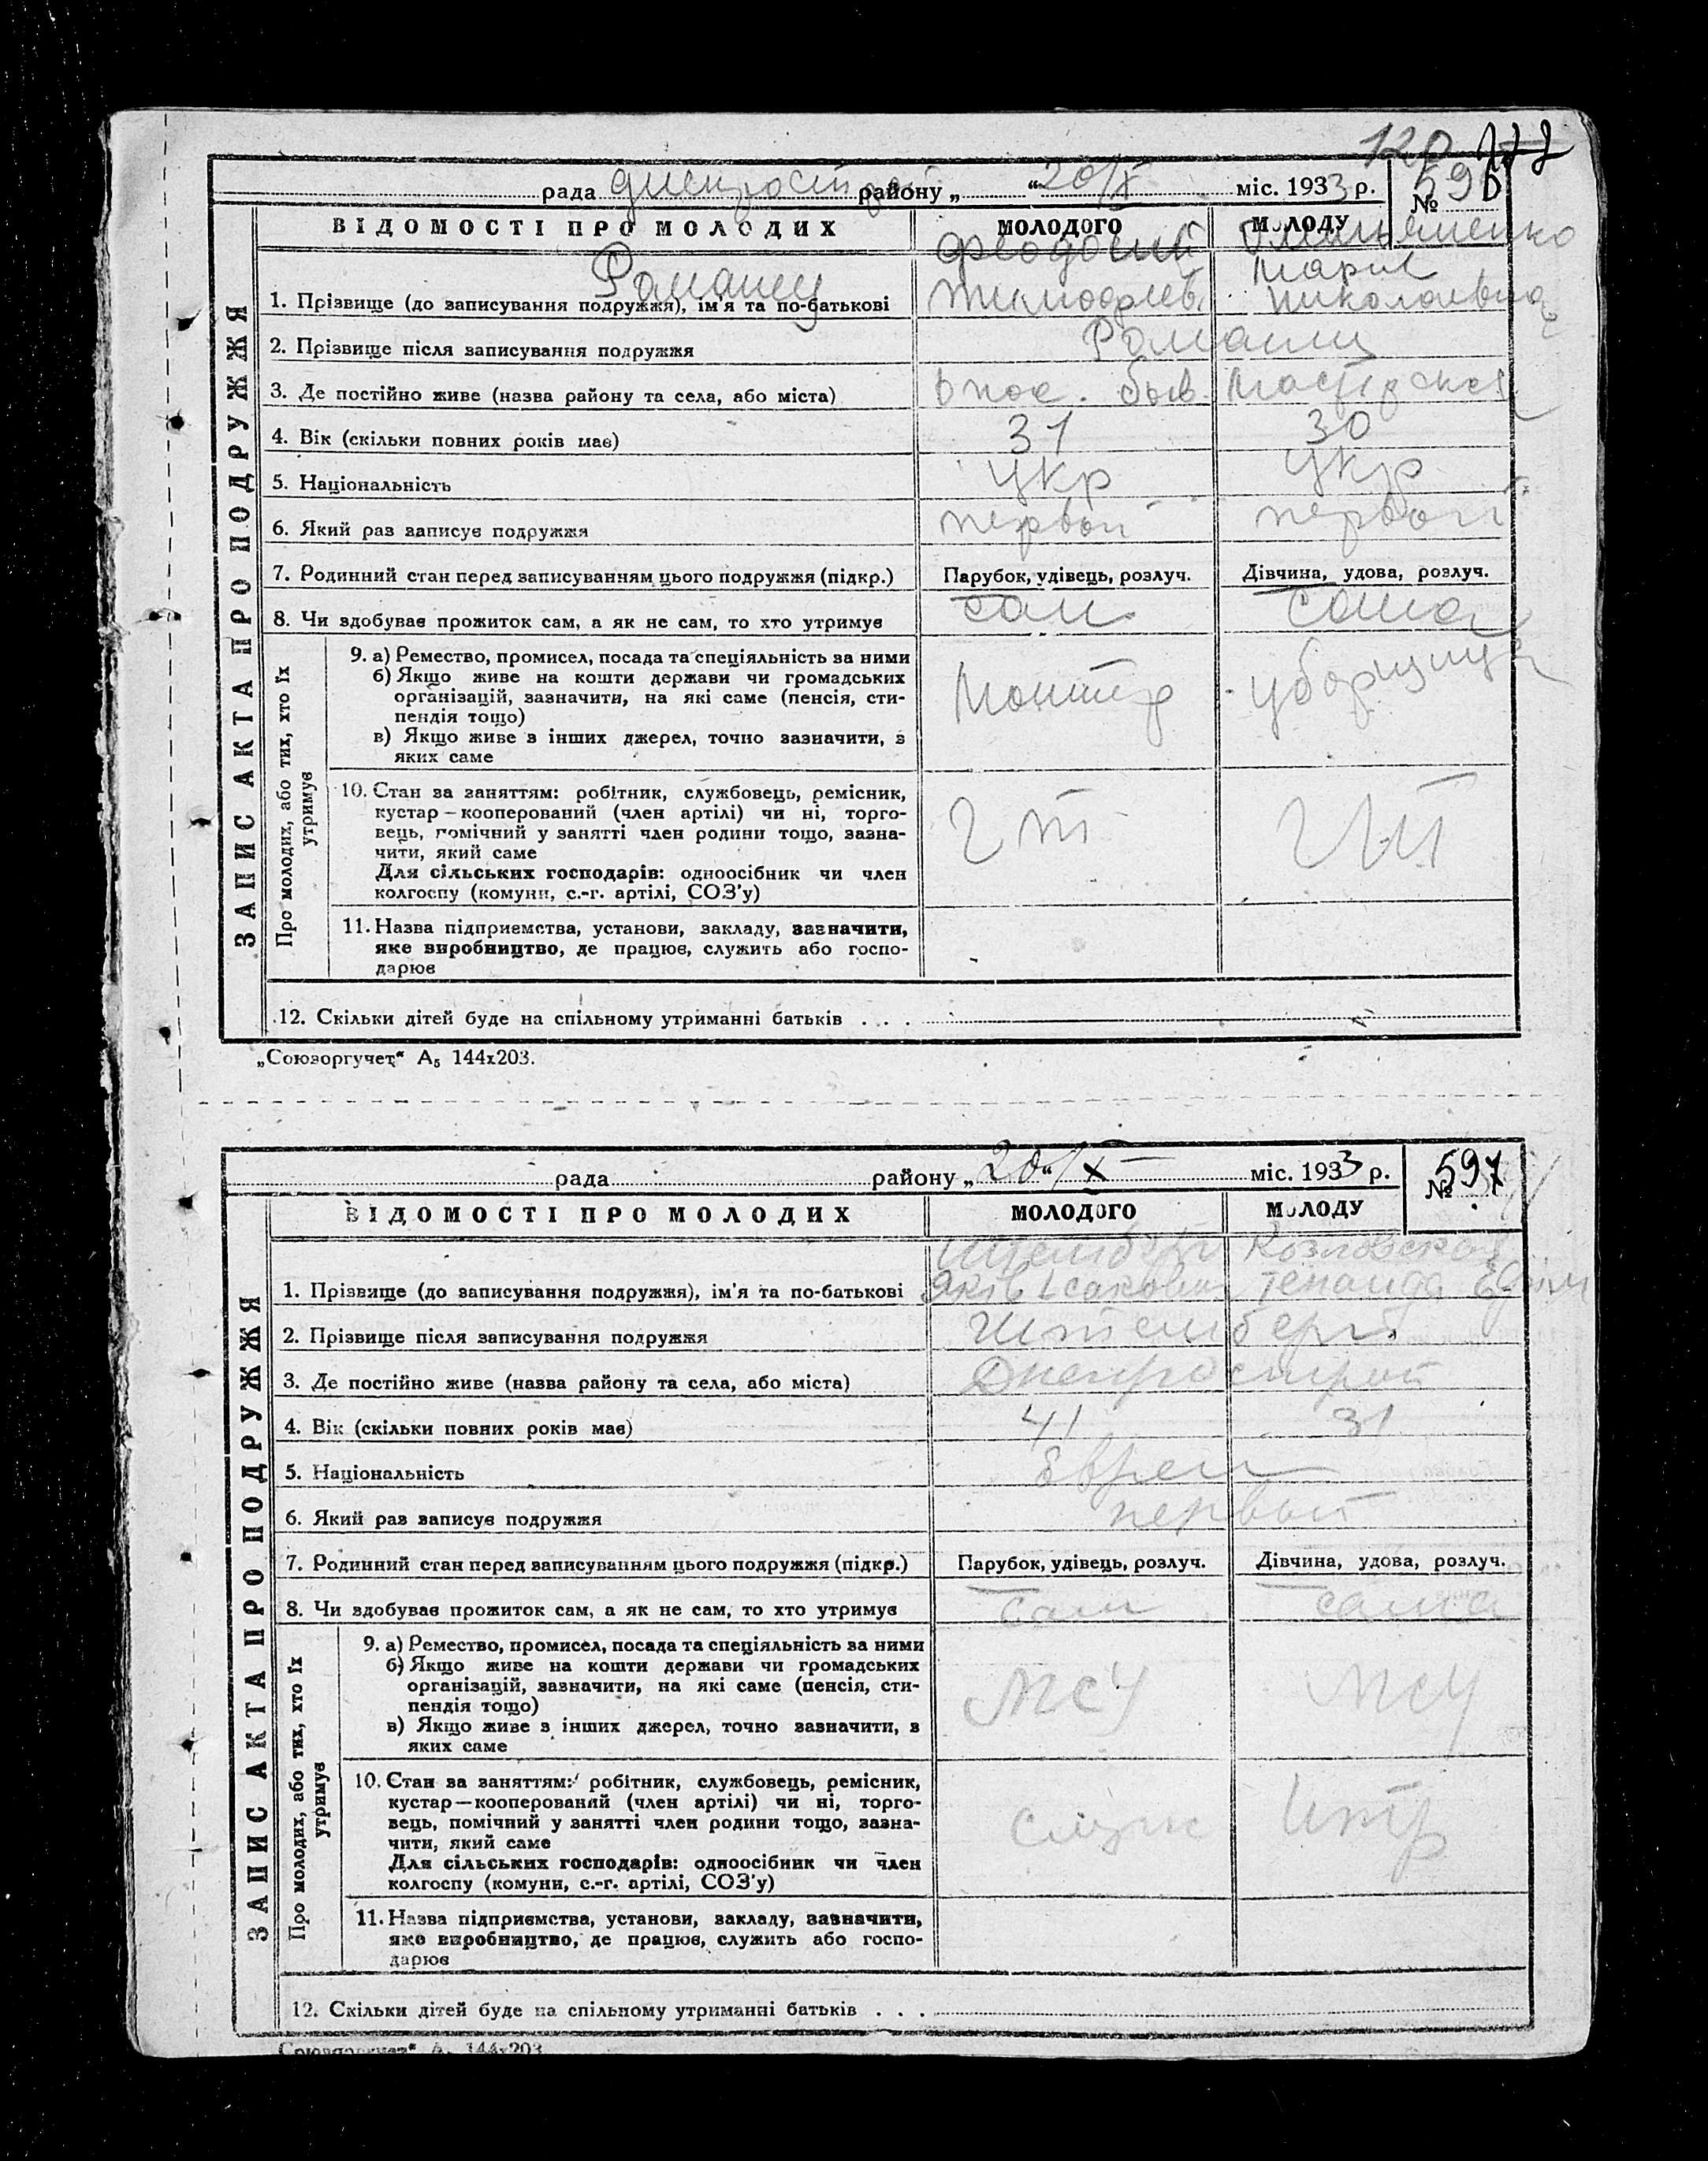 120
рада Днепрострой району „ “ 20/X міс. 1933 р. № 596
ВІДОМОСТІ ПРО МОЛОДИХ МОЛОДОГО МОЛОДУ
ЗАПИС АКТА ПРО ПОДРУЖЖЯ
Романец Феодосий
Мария
1. Прізвище (до записування подружжя), ім'я та по-батькові Тимофиев Николаевна
2. Прізвище після записування подружжя Романец
3. Де постійно живе (назва району та села, або міста) быв
4. Вік (скільки повних років має) 31 30
5. Національність укр укр
6. Який раз записує подружжя первой первой
7. Родинний стан перед записуванням цього подружжя (підкр.) Парубок, удівець, розлуч. Дівчина, удова, розлуч.
8. Чи здобуває прожиток сам, а як не сам, то хто утримує сам сама
Про молодих, або тих, хто їх утримує
9. а) Ремество, промисел, посада та спеціяльність за ними
б) Якщо живе на кошти держави чи громадських
організацій, зазначити, на які саме (пенсія, сти-
пендія тощо)
в) Якщо живе з інших джерел, точно зазначити, з
яких саме
Монтер уборщица
10. Стан за заняттям: робітник, службовець, ремісник,
кустар—кооперований (член артілі) чи ні, торго-
вець, помічний у занятті член родини тощо, зазна-
чити, який саме
Для сільських господарів: одноосібник чи член
колгоспу (комуни, с.-г. артілі, СОЗ'у)
11. Назва підприємства, установи, закладу, зазначити,
яке виробництво, де працює, служить або госпо-
дарює
12. Скільки дітей буде на спільному утриманні батьків . . .
„Союзоргучет“ А₅ 144х203.
рада району „ 20 “ /X міс. 1933 р. № 597
ВІДОМОСТІ ПРО МОЛОДИХ МОЛОДОГО МОЛОДУ
ЗАПИС АКТА ПРО ПОДРУЖЖЯ
Штемберг Козловская
1. Прізвище (до записування подружжя), ім'я та по-батькові Яків Ісакович
2. Прізвище після записування подружжя Штемберг
3. Де постійно живе (назва району та села, або міста) Днепрострой
4. Вік (скільки повних років має) 41 31
5. Національність Евреи
6. Який раз записує подружжя первый
7. Родинний стан перед записуванням цього подружжя (підкр.) Парубок, удівець, розлуч. Дівчина, удова, розлуч.
8. Чи здобуває прожиток сам, а як не сам, то хто утримує сам сама
Про молодих, або тих, хто їх утримує
9. а) Ремество, промисел, посада та спеціяльність за ними
б) Якщо живе на кошти держави чи громадських
організацій, зазначити, на які саме (пенсія, сти-
пендія тощо)
в) Якщо живе з інших джерел, точно зазначити, з
яких саме
МСУ МСУ
10. Стан за заняттям: робітник, службовець, ремісник,
кустар—кооперований (член артілі) чи ні, торго-
вець, помічний у занятті член родини тощо, зазна-
чити, який саме
Для сільських господарів: одноосібник чи член
колгоспу (комуни, с.-г. артілі, СОЗ'у)
служ Итр
11. Назва підприємства, установи, закладу, зазначити,
яке виробництво, де працює, служить або госпо-
дарює
12. Скільки дітей буде на спільному утриманні батьків . . .
„Союзоргучет“ А₅ 144х203